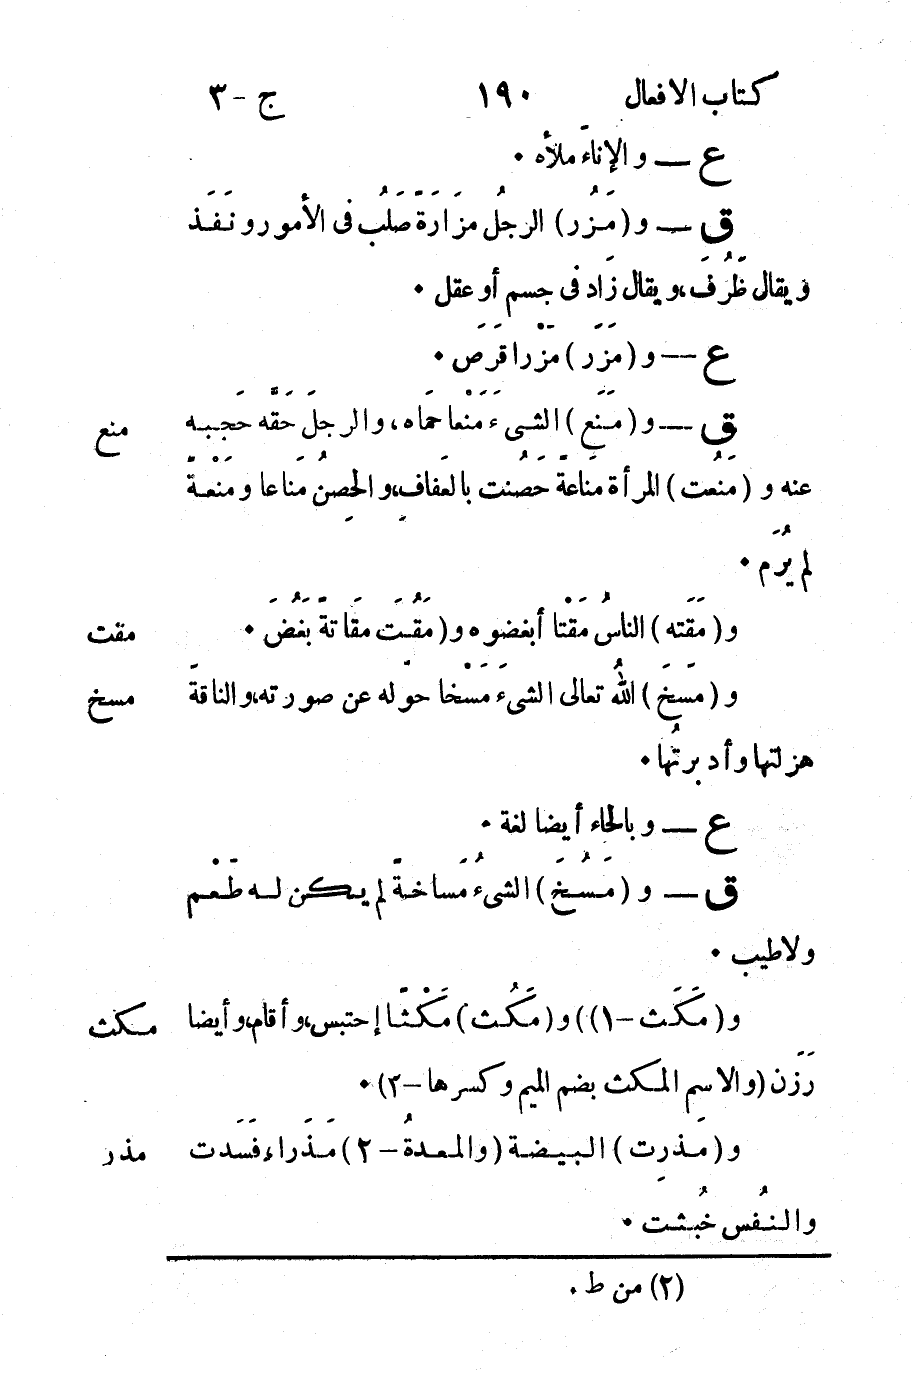 كتاب الافعال ١٩٠ ج - ٣
ع — و الإناءَ ملأه .
ق — و ( مَزُر ) الرجلُ مَزَارَةً صَلُب فى الأمور و نَفَذ
و يقال ظَرُفَ، و يقال زَاد فى جسم أو عقل .
ع — و ( مَزَر ) مَزْرا قَرَص .
ق — و ( مَنَع ) الشىءَ مَنْعا حَمَاه، و الرجلَ حَقَّه حَجَبه منع
عنه و ( مَنُعت ) المرأة مَنَاعةً حَصُنت بالعفاف، و الحِصنُ مَنَاعا و مَنْعةً
لم يُرَم .
و ( مَقَته ) الناسُ مَقْتا أبغضوه و ( مَقُت مَقَاتةً بَغُضَ . مقت
و ( مَسَخَ ) اللهُ تعالى الشىءَ مَسْخا حوّله عن صورته، و الناقةَ مسخ
هزلتها و أدبرتُها .
ع — و بالحاء أيضا لغة .
ق — و ( مَسُخَ ) الشىءُ مَساخةً لم يكن له طَعْم
ولا طيب .
و ( مَكَث - ١)) و ( مَكُث ) مَكْثًا إحتبس، و أقام، و أيضا مكث
رَزَن (و الاسم المكث بضم الميم و كسرها - ٢) .
و ( مَذِرت ) البيضة ( والمعدةُ - ٢ ) مَذَراء فَسَدت مذر
والنفُس خبُثت .
(٢) من ط .